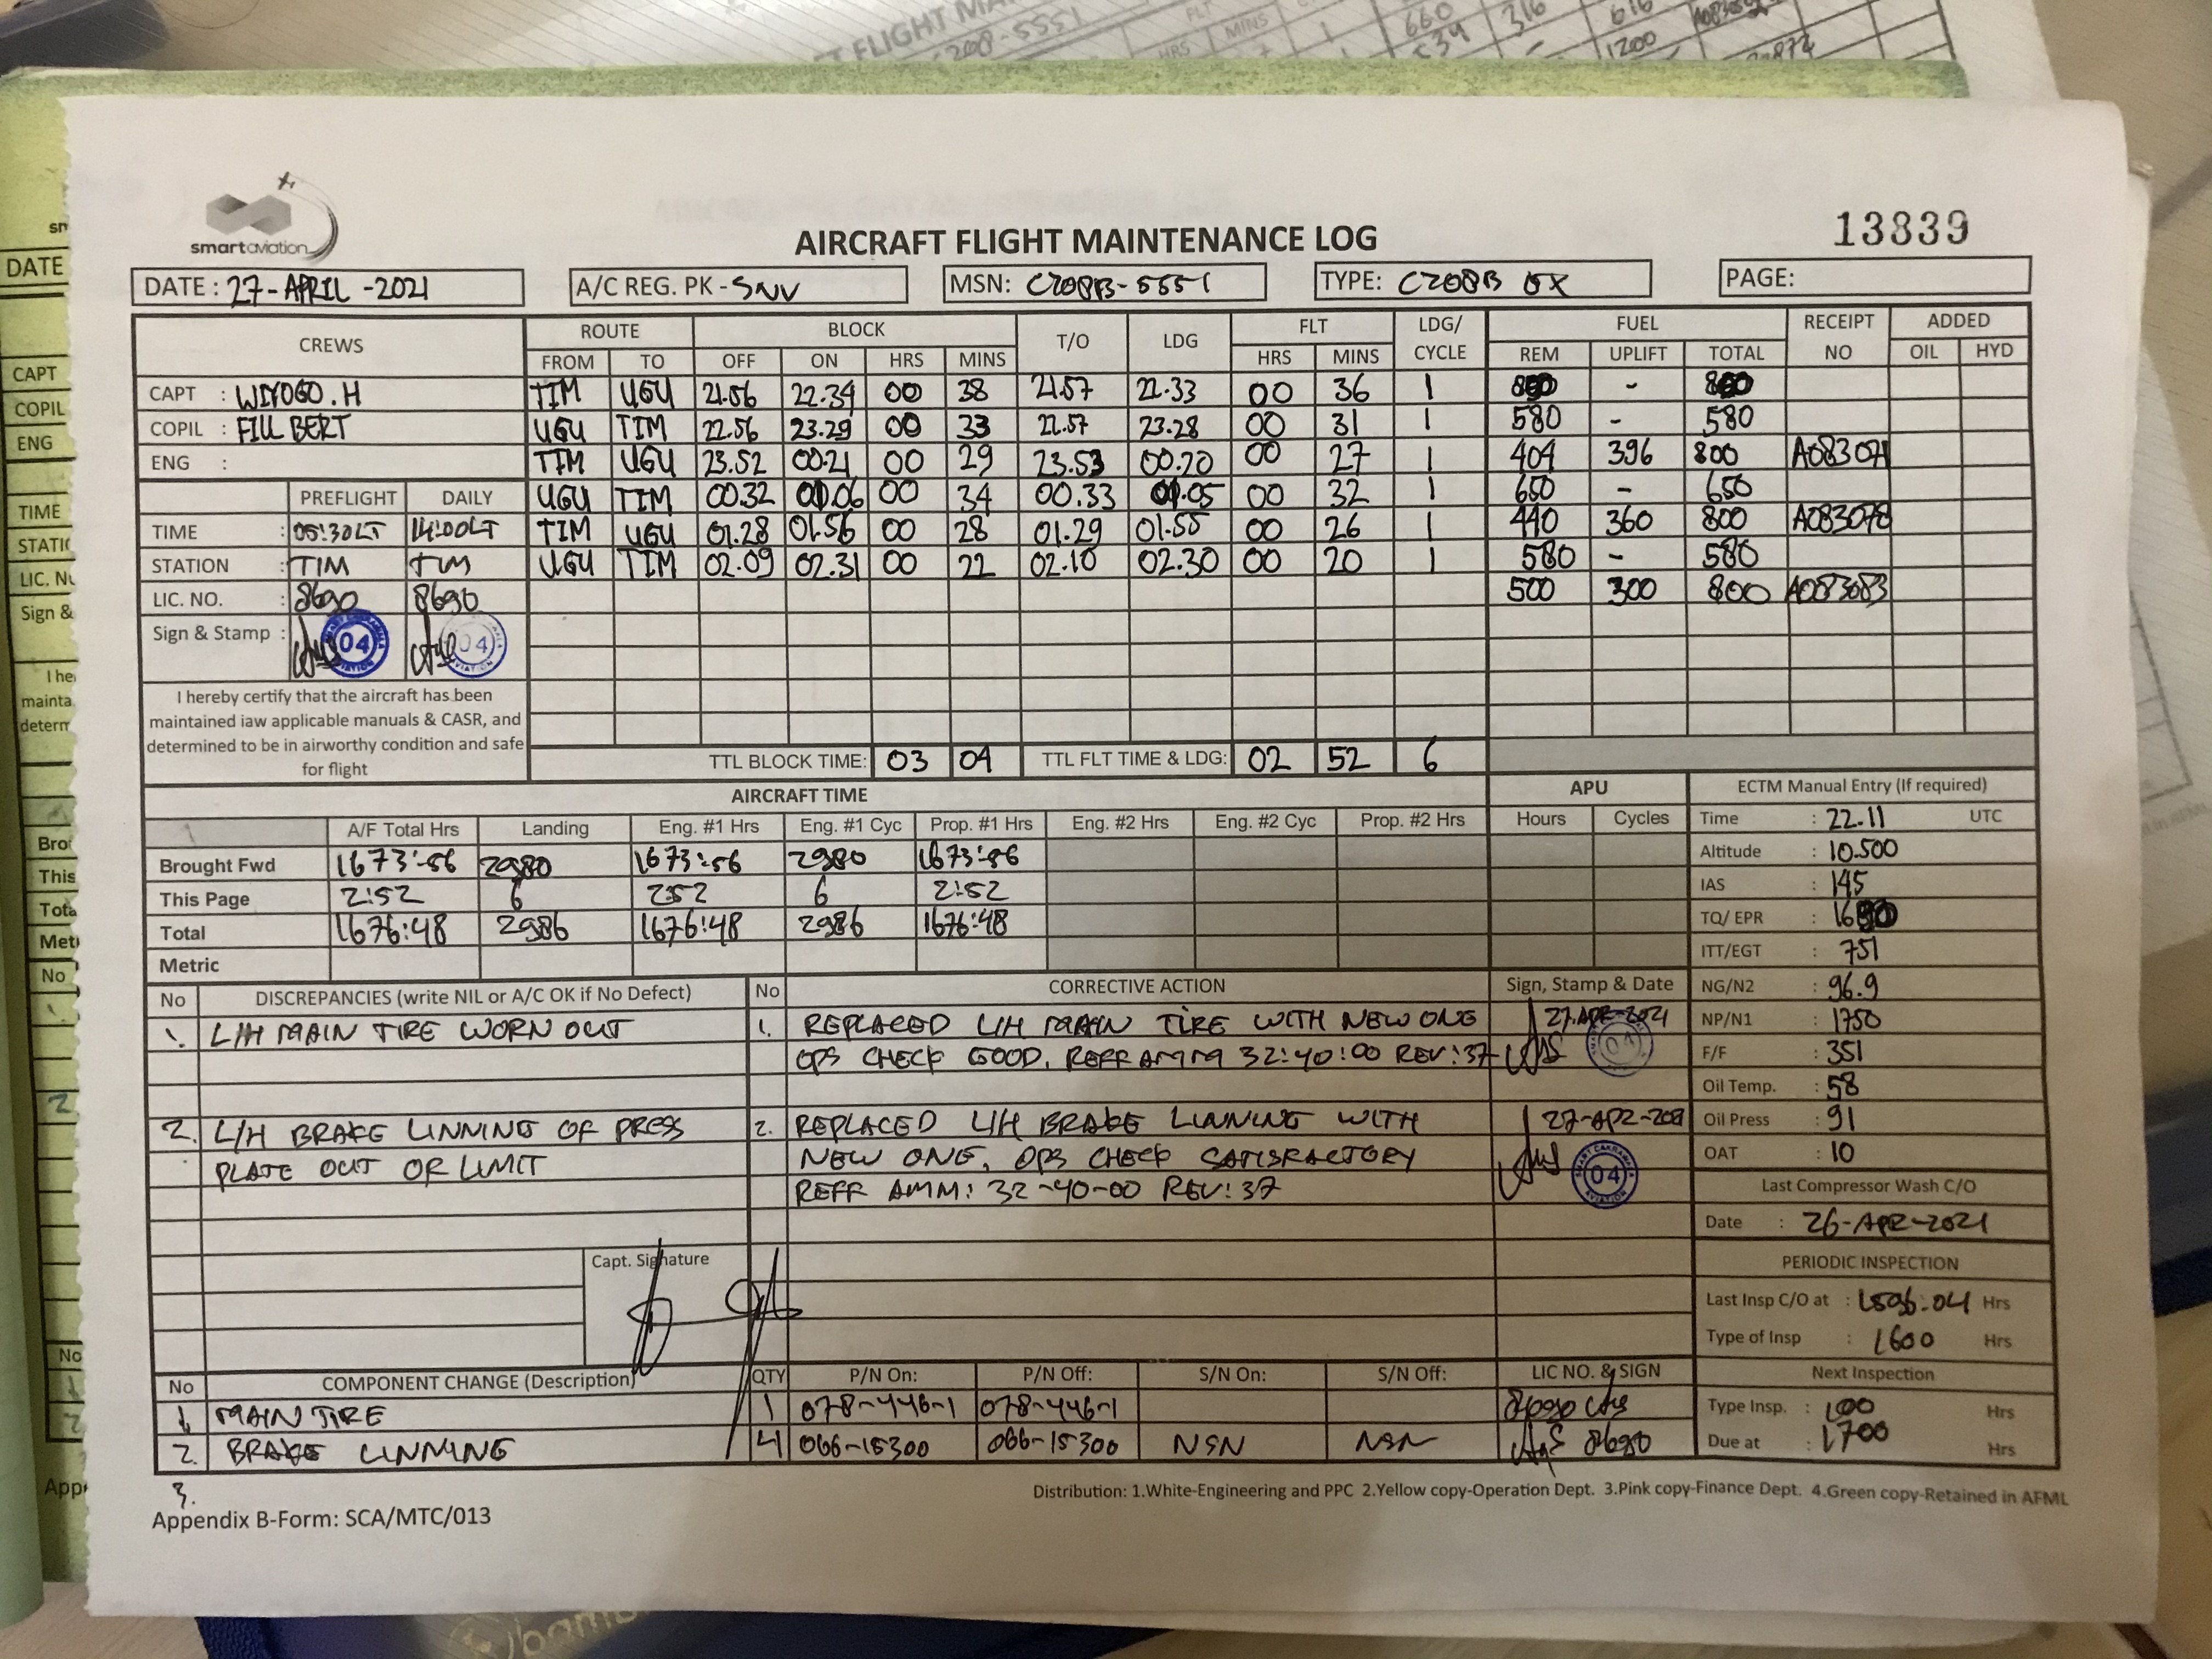 smartaviation
AIRCRAFT FLIGHT MAINTENANCE LOG
13839
DATE : 27-APRIL-2021
A/C REG. PK - SNV
MSN: C208B-5551
TYPE: C208B EX
PAGE:
CREWS ROUTE BLOCK T/O LDG FLT LDG/ CYCLE FUEL RECEIPT NO ADDED
FROM TO OFF ON HRS MINS HRS MINS REM UPLIFT TOTAL OIL HYD
CAPT : WIYOGO.H TIM UGU 21.56 22.34 00 38 21.57 22.33 00 36 1 -
COPIL : FILLBERT UGU TIM 22.56 23.29 00 33 22.57 23.28 00 31 1 580 - 580
ENG : TIM UGU 23.52 00.21 00 29 23.53 00.20 00 27 1 404 396 800 A083071
PREFLIGHT DAILY UGU TIM 00.32 01.06 00 34 00.33 01.05 00 32 1 650 - 650
TIME : 05:30LT 14:00LT TIM UGU 01.28 01.56 00 28 01.29 01.55 00 26 1 440 360 800 A083078
STATION : TIM TIM UGU TIM 02.09 02.31 00 22 02.10 02.30 00 20 1 580 - 580
LIC. NO. 8690 8690 500 300 800 A083083
Sign & Stamp : 04 04
I hereby certify that the aircraft has been
maintained iaw applicable manuals & CASR, and
determined to be in airworthy condition and safe
for flight
TTL BLOCK TIME: 03 04 TTL FLT TIME & LDG: 02 52 6
AIRCRAFT TIME APU
A/F Total Hrs Landing Eng. #1 Hrs Eng. #1 Cyc Prop. #1 Hrs Eng. #2 Hrs Eng. #2 Cyc Prop. #2 Hrs Hours Cycles
Brought Fwd 1673:56 2980 1673:56 2980 1673:56
This Page 2:52 6 2:52 6 2:52
Total 1676:48 2986 1676:48 2986 1676:48
Metric
ECTM Manual Entry (If required)
Time : 22.11 UTC
Altitude : 10.500
IAS : 145
TQ/ EPR :
ITT/EGT : 751
NG/N2 : 96.9
NP/N1 : 1750
F/F : 351
Oil Temp. : 58
Oil Press : 91
OAT : 10
Last Compressor Wash C/O
Date : 26-APR-2021
PERIODIC INSPECTION
Last Insp C/O at : 1596:04 Hrs
Type of Insp : 1600 Hrs
Next Inspection
Type Insp. : 100 Hrs
Due at : 1700 Hrs
No DISCREPANCIES (write NIL or A/C OK if No Defect) No CORRECTIVE ACTION Sign, Stamp & Date
1. L/H MAIN TIRE WORN OUT 1. REPLACED L/H MAIN TIRE WITH NEW ONE 27.APR-2021
OPS CHECK GOOD. REFF AMM 32:40:00 REV:37 04
2. L/H BRAKE LINNING OF PRESS 2. REPLACED L/H BRAKE LINNING WITH
PLATE OUT OR LIMIT NEW ONE, OPS CHECK SATISFACTORY
REFF AMM: 32-40-00 REV:37
SMART CAKRAWALA AVIATION 04
Capt. Signature
No COMPONENT CHANGE (Description) QTY P/N On: P/N Off: S/N On: S/N Off: LIC NO. & SIGN
1 MAIN TIRE 1 078-446-1 078-446-1 8690
2. BRAKE LINNING 4 066-15300 066-15300 NSN NSN 8690
3.
Distribution: 1.White-Engineering and PPC 2.Yellow copy-Operation Dept. 3.Pink copy-Finance Dept. 4.Green copy-Retained in AFML
Appendix B-Form: SCA/MTC/013